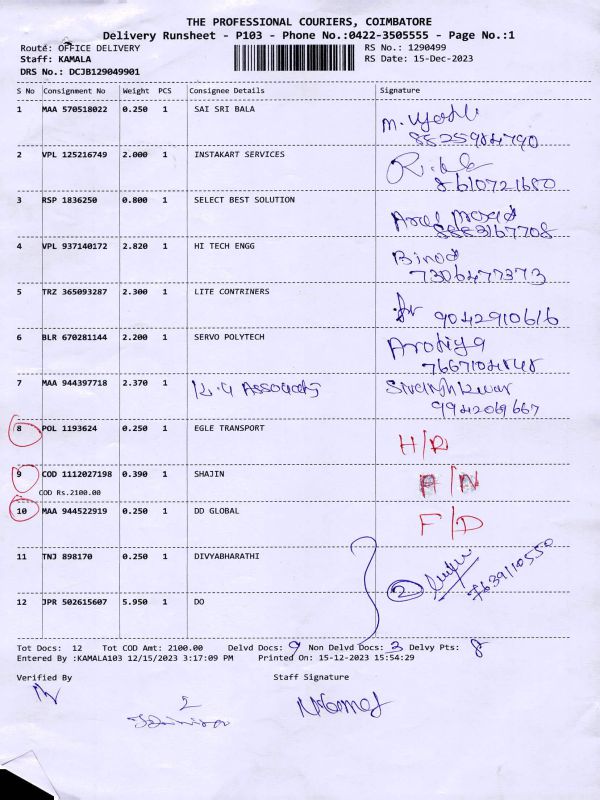 THE PROFESSIONAL COURIERS, COIMBATORE
Delivery Runsheet - P103 - Phone No.:0422-3505555 - Page No.:1
Route: OFFICE DELIVERY RS No.: 1290499
Staff: KAMALA RS Date: 15-Dec-2023
DRS No.: DCJB129049901
S No Consignment No Weight PCS Consignee Details Signature
1 MAA 570518022 0.250 1 SAI SRI BALA
8525984790
2 VPL 125216749 2.000 1 INSTAKART SERVICES
8610721680
3 RSP 1836250 0.800 1 SELECT BEST SOLUTION
4 VPL 937140172 2.820 1 HI TECH ENGG Binod
7306477373
5 TRZ 365093287 2.300 1 LITE CONTRINERS
9042910616
6 BLR 670281144 2.200 1 SERVO POLYTECH
7667104848
7 MAA 944397718 2.370 1
9942069667
8 POL 1193624 0.250 1 EGLE TRANSPORT
H/R
9 COD 1112027198 0.390 1 SHAJIN A/N
COD Rs.2100.00
10 MAA 944522919 0.250 1 DD GLOBAL F/D
11 TNJ 898170 0.250 1 DIVYABHARATHI
2 7639110550
12 JPR 502615607 5.950 1 DO
Tot Docs: 12 Tot COD Amt: 2100.00 Delvd Docs: 9 Non Delvd Docs: 3 Delvy Pts: 8
Entered By :KAMALA103 12/15/2023 3:17:09 PM Printed On: 15-12-2023 15:54:29
Verified By Staff Signature